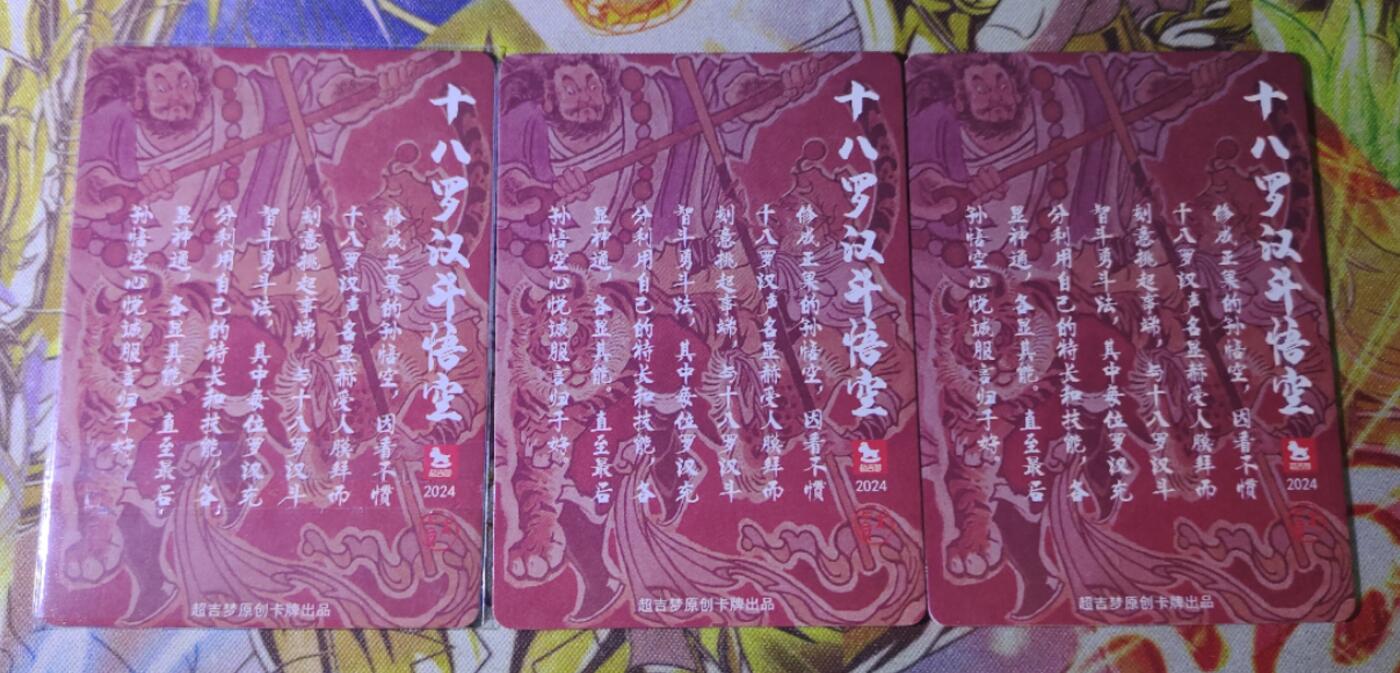 十八罗汉斗悟空
修成正果的孙悟空，因看不惯
十八罗汉声名显赫受人膜拜而
刻意挑起事端，与十八罗汉斗
智斗勇斗法，其中每位罗汉充
分利用自己的特长和技能，各
显神通，各显其能。直至最后，
孙悟空心悦诚服言归于好。
超吉梦
2024
超吉梦原创卡牌出品
十八罗汉斗悟空
修成正果的孙悟空，因看不惯
十八罗汉声名显赫受人膜拜而
刻意挑起事端，与十八罗汉斗
智斗勇斗法，其中每位罗汉充
分利用自己的特长和技能，各
显神通，各显其能。直至最后
孙悟空心悦诚服言归于好。
超吉梦
2024
超吉梦原创卡牌出品
十八罗汉斗悟空
修成正果的孙悟空，因看不惯
十八罗汉声名显赫受人膜拜而
刻意挑起事端，与十八罗汉斗
智斗勇斗法，其中每位罗汉充
分利用自己的特长和技能，各
显神通，各显其能。直至最后
孙悟空心悦诚服言归于好。
超吉梦
2024
超吉梦原创卡牌出品